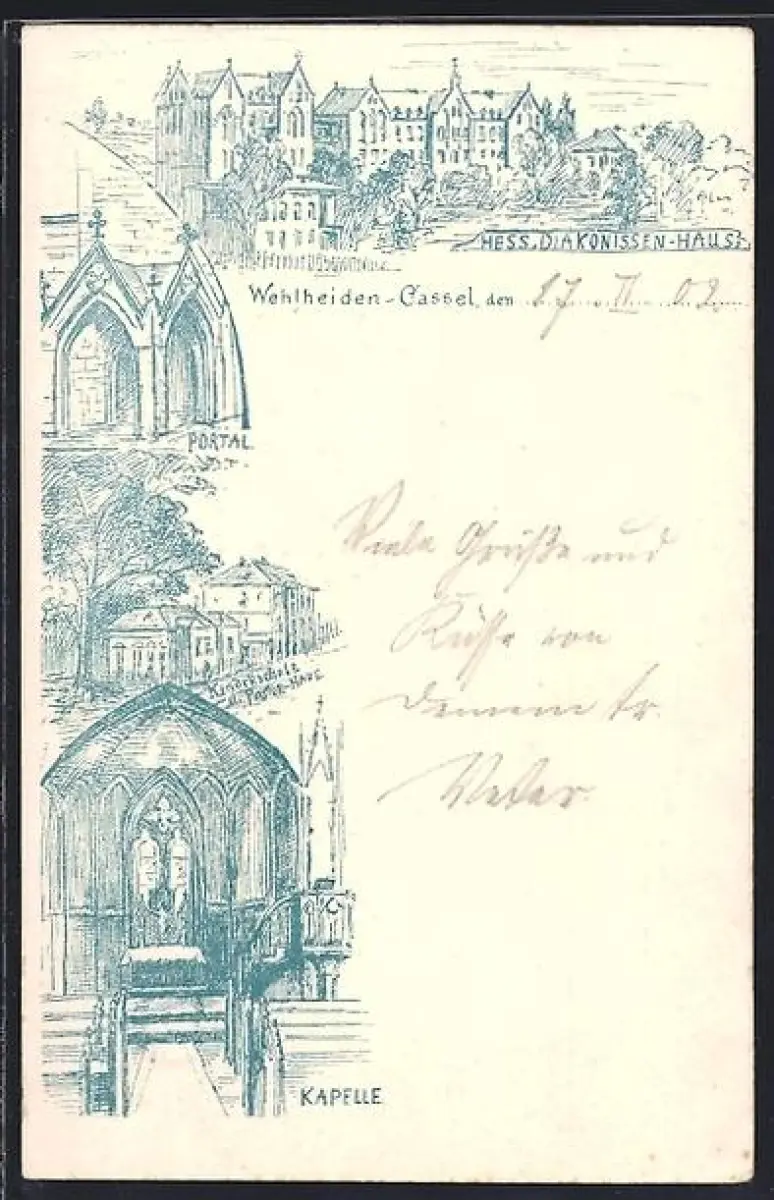 HESS. DIAKONISSEN-HAUS.
Wehlheiden-Cassel, den 17. II. 02.
PORTAL
Viele Grüße und
Küsse von
Deinem tr.
Kinderschule
Pfarr-Haus
KAPELLE